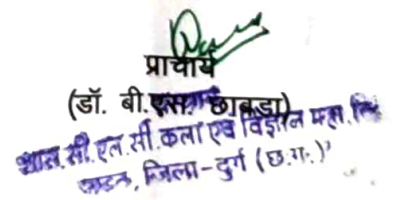 प्राचार्य
(डॉ. बी.एस. छाबडा)
शास. सी. एल. सी. कला एवं विज्ञान महा. वि
पाटन, जिला-दुर्ग (छ.ग.)